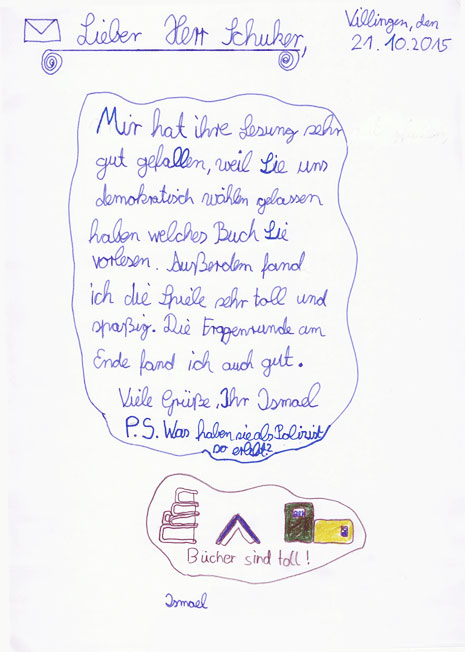 Lieber Herr Schuker,
Villingen, den
21.10.2015
Mir hat ihre Lesung sehr
gut gefallen, weil Sie uns
demokratisch wählen gelassen
haben welches Buch Sie
vorlesen. Außerdem fand
ich die Spiele sehr toll und
spaßig. Die Fragenrunde am
Ende fand ich auch gut.
Viele Grüße, Ihr Ismael
P.S. Was haben sie als Polizist
so erlebt?
Bücher sind toll!
Ismael